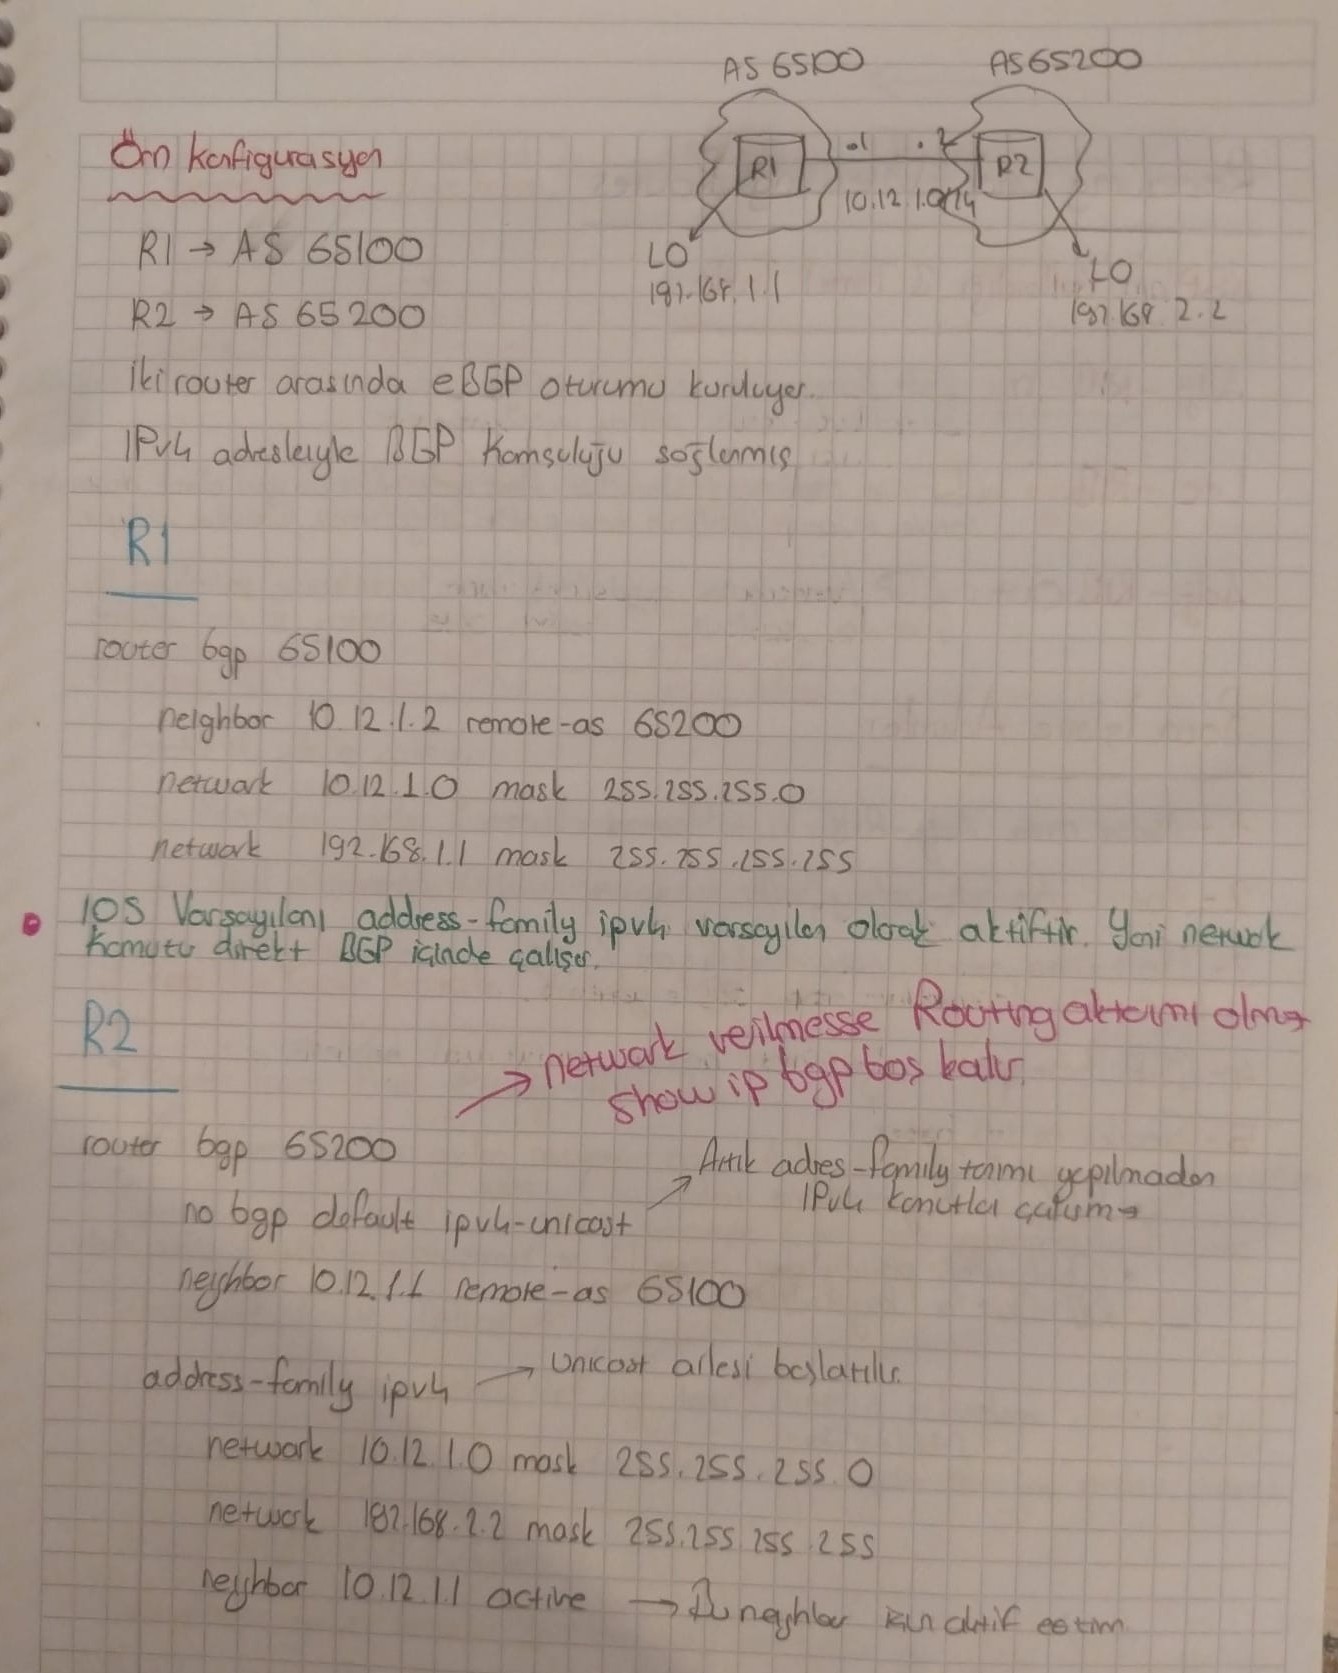 AS 65100
AS 65200
Örn konfigurasyon
R1
.1
.2
R2
10.12.1.0/24
R1 → AS 65100
LO
192.168.1.1
LO
192.168.2.2
R2 → AS 65200
İki router arasında eBGP oturumu kuruluyor.
IPv4 adresleriyle BGP Komşuluğu sağlanmış
R1
router bgp 65100
neighbor 10.12.1.2 remote-as 65200
network 10.12.1.0 mask 255.255.255.0
network 192.168.1.1 mask 255.255.255.255
IOS Varsayılanı address-family ipv4 varsayılan olarak aktiftir. Yani network
Komutu direkt BGP içinde çalışır.
R2
→ network verilmesse Routing aktarımı olmaz
show ip bgp boş kalır.
router bgp 65200
Artık adres-family tanımı yapılmadan
IPv4 komutları çalışmaz
no bgp default ipv4-unicast
neighbor 10.12.1.1 remote-as 65100
address-family ipv4 → Unicast ailesi başlatılır.
network 10.12.1.0 mask 255.255.255.0
network 192.168.2.2 mask 255.255.255.255
neighbor 10.12.1.1 active → Bu neighbor için aktif ettim